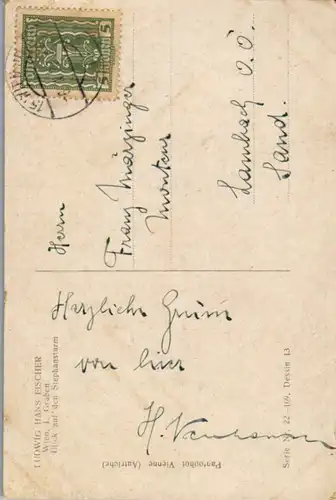 LUDWIG HANS FISCHER
Wien, I. Graben
Blick auf den Stephansturm
Herzliche Grüße
von hier
H.
Serie 22-108, Dessin 13
Pantophot Vienne (Autriche)
Herrn
Franz Märzinger
Monteur
Lambach O.Ö.
Land.
5
5